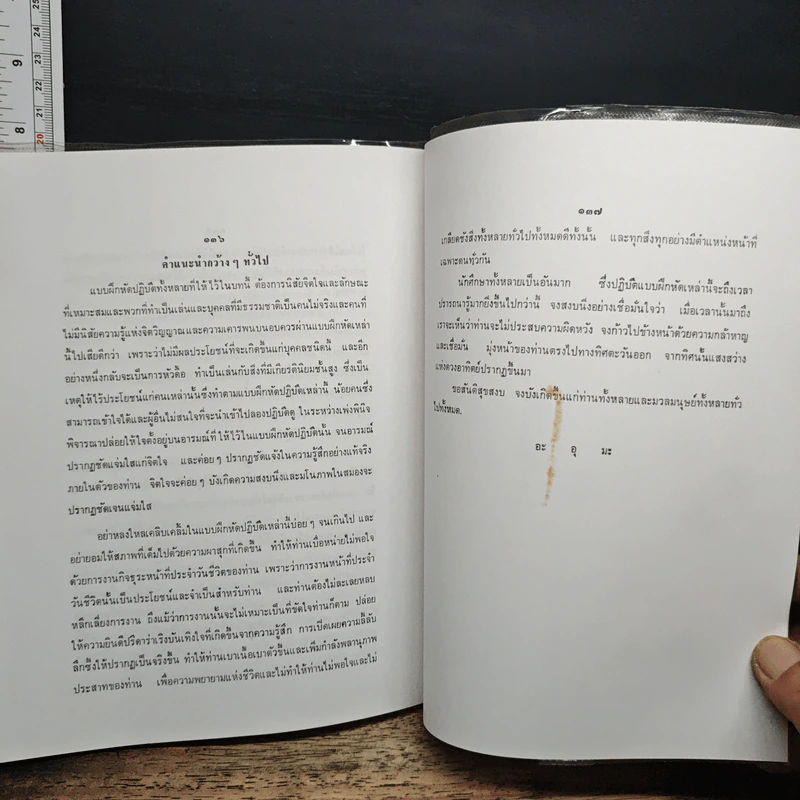 25
24
23
22
21
20
9
8
๑๓๖
คำแนะนำกว้าง ๆ ทั่วไป
แบบฝึกหัดปฏิบัติทั้งหลายที่ให้ไว้ในบทนี้ ต้องการนิสัยจิตใจและลักษณะ
ที่เหมาะสมและพวกที่ทำเป็นเล่นและบุคคลที่มีธรรมชาติเป็นคนไม่จริงและคนที่
ไม่มีนิสัยความรู้แห่งจิตวิญญาณและความเคารพนบนอบควรผ่านแบบฝึกหัดเหล่า
นี้ไปเสียดีกว่า เพราะว่าไม่มีผลประโยชน์ที่จะเกิดขึ้นแก่บุคคลชนิดนี้ และอีก
อย่างหนึ่งกลับจะเป็นการหัวดื้อ ทำเป็นเล่นกับสิ่งที่มีเกียรตินิยมชั้นสูง ซึ่งเป็น
เหตุให้ไร้ประโยชน์แก่คนเหล่านั้นซึ่งทำตามแบบฝึกหัดปฏิบัติเหล่านี้ น้อยคนซึ่ง
สามารถเข้าใจได้และผู้อื่นไม่สนใจที่จะนำเข้าไปลองปฏิบัติดู ในระหว่างเพ่งพินิจ
พิจารณาปล่อยให้ใจตั้งอยู่บนอารมณ์ที่ให้ไว้ในแบบฝึกหัดปฏิบัตินั้น จนอารมณ์
ปรากฏชัดแจ่มใสแก่จิตใจ และค่อย ๆ ปรากฏชัดแจ้งในความรู้สึกอย่างแท้จริง
ภายในตัวของท่าน จิตใจจะค่อย ๆ บังเกิดความสงบนิ่งและมโนภาพในสมองจะ
ปรากฏชัดเจนแจ่มใส
อย่าหลงใหลเคลิบเคลิ้มในแบบฝึกหัดปฏิบัติเหล่านี้บ่อย ๆ จนเกินไป และ
อย่ายอมให้สภาพที่เต็มไปด้วยความผาสุกที่เกิดขึ้น ทำให้ท่านเบื่อหน่ายไม่พอใจ
ด้วยการงานกิจธุระหน้าที่ประจำวันชีวิตของท่าน เพราะว่าการงานหน้าที่ประจำ
วันชีวิตนั้นเป็นประโยชน์และจำเป็นสำหรับท่าน และท่านต้องไม่ละเลยหลบ
หลีกเลี่ยงการงาน ถึงแม้ว่าการงานนั้นจะไม่เหมาะเป็นที่ขัดใจท่านก็ตาม ปล่อย
ให้ความยินดีปรีดาร่าเริงบันเทิงใจที่เกิดขึ้นจากความรู้สึก การเปิดเผยความลี้ลับ
ลึกซึ้งให้ปรากฏเป็นจริงขึ้น ทำให้ท่านเบาเนื้อเบาตัวขึ้นและเพิ่มกำลังพลานุภาพ
ประสาทของท่าน เพื่อความพยายามแห่งชีวิตและไม่ทำให้ท่านไม่พอใจและไม่
๑๓๗
เกลียดชังสิ่งทั้งหลายทั่วไปทั้งหมดดีทั้งนั้น และทุกสิ่งทุกอย่างมีตำแหน่งหน้าที่
เฉพาะตนทั่วกัน
นักศึกษาทั้งหลายเป็นอันมาก ซึ่งปฏิบัติแบบฝึกหัดเหล่านี้จะถึงเวลา
ปรารถนารู้มากยิ่งขึ้นไปกว่านี้ จงสงบนิ่งอย่างเชื่อมั่นใจว่า เมื่อเวลานั้นมาถึง
เราจะเห็นว่าท่านจะไม่ประสบความผิดหวัง จงก้าวไปข้างหน้าด้วยความกล้าหาญ
และเชื่อมั่น มุ่งหน้าของท่านตรงไปทางทิศตะวันออก จากทิศนั้นแสงสว่าง
แห่งดวงอาทิตย์ปรากฏขึ้นมา
ขอสันติสุขสงบ จงบังเกิดขึ้นแก่ท่านทั้งหลายและมวลมนุษย์ทั้งหลายทั่ว
ไปทั้งหมด.
อะ อุ มะ